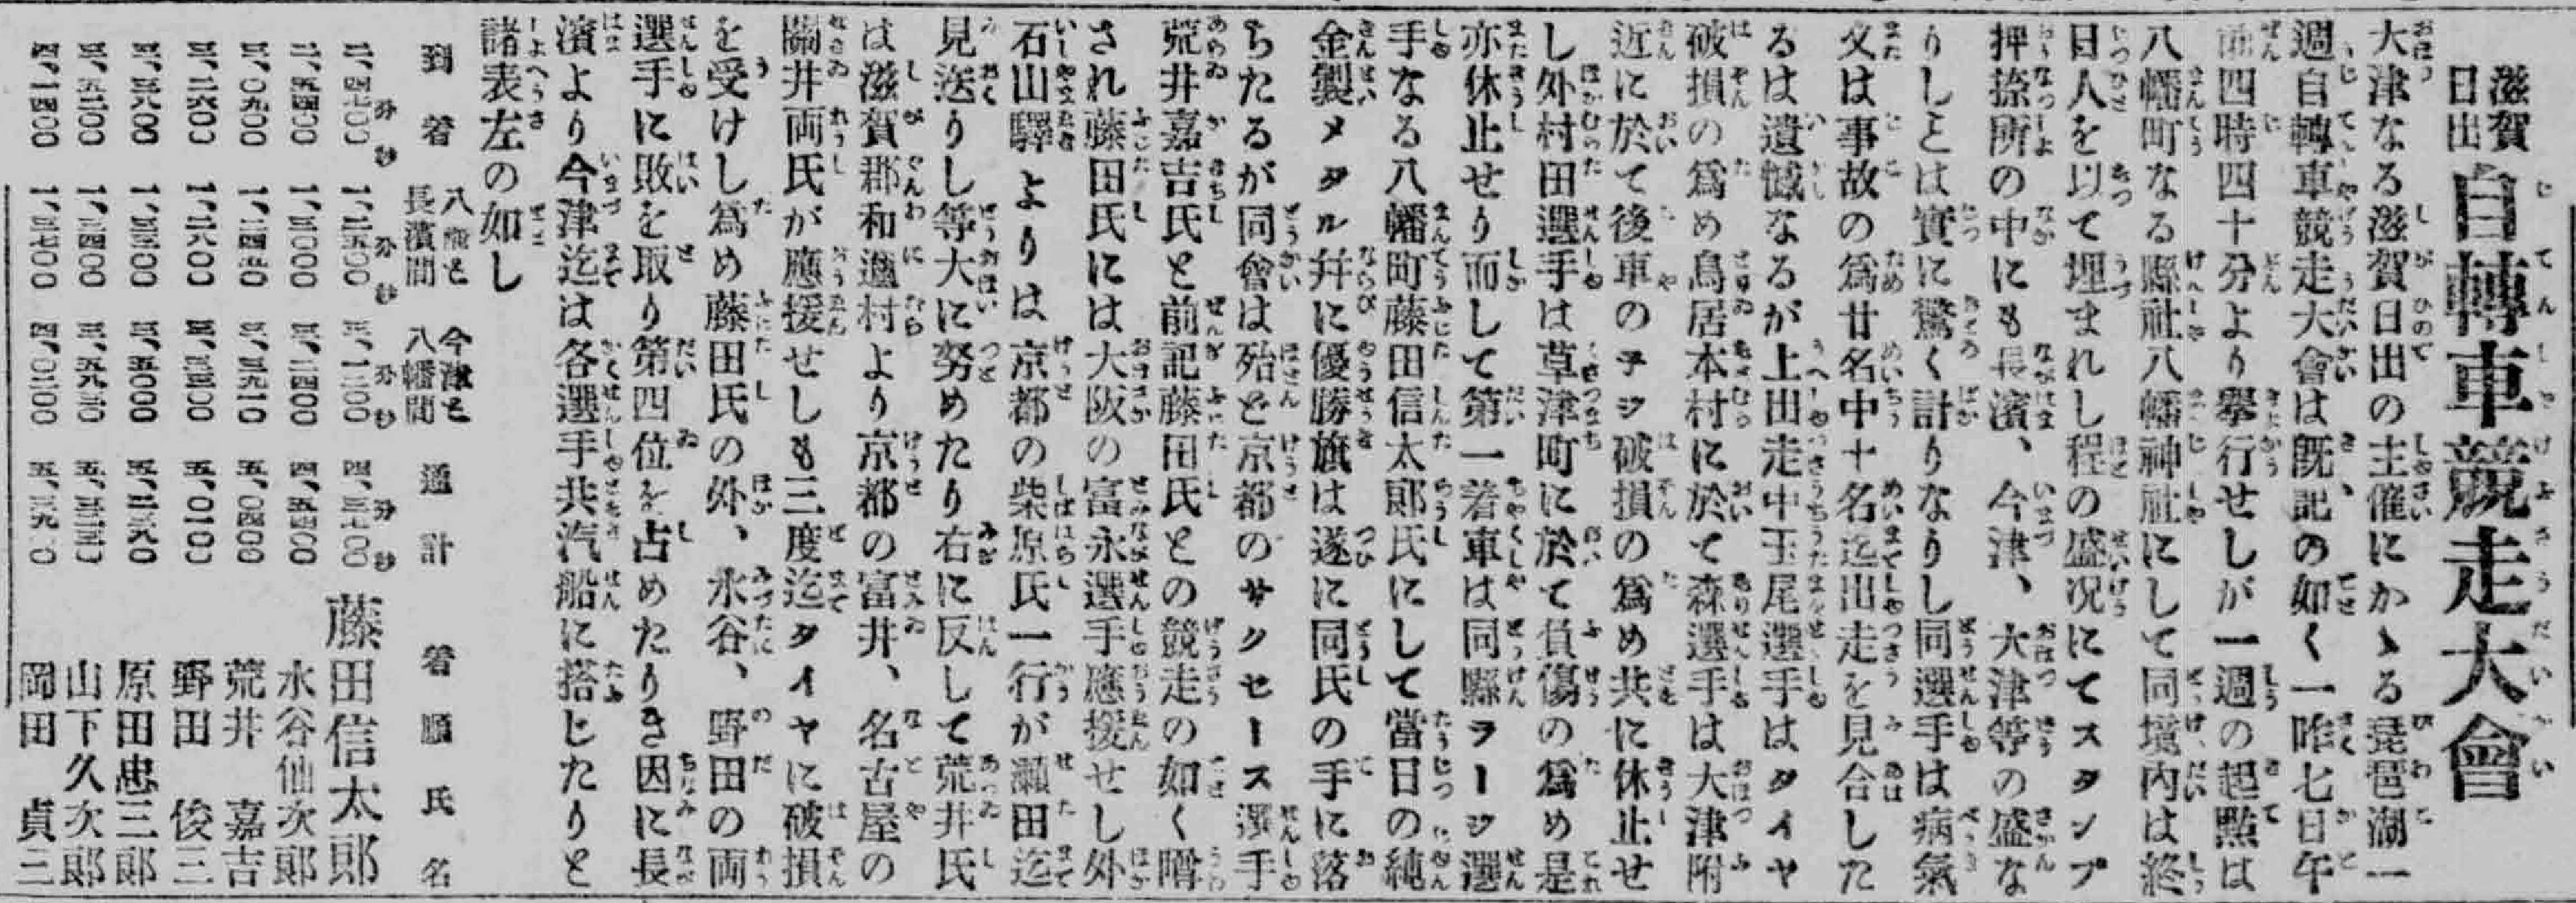 滋賀日出 自轉車競走大會
大津なる滋賀日出の主催にかゝる琵琶湖一
週自轉車競走大會は既記の如く一昨七日午
前四時四十分より擧行せしが一週の起點は
八幡町なる縣社八幡神社にして同境内は終
日人を以て埋まれし程の盛况にてスタンプ
押捺所の中にも長濱、今津、大津等の盛な
りしとは實に驚く計りなりし同選手は病氣
又は事故の爲廿名中十名迄出走を見合した
るは遺憾なるが上田走中玉尾選手はタイヤ
破損の爲め鳥居本村に於て森選手は大津附
近に於て後車のチヅ破損の爲め共に休止せ
し外村田選手は草津町に於て負傷の爲め是
亦休止せり而して第一着車は同縣ラージ選
手なる八幡町藤田信太郞氏にして當日の純
金製メタル幷に優勝旗は遂に同氏の手に落
ちたるが同會は殆ど京都のサクセース選手
荒井嘉吉氏と前記藤田氏との競走の如く
され藤田氏には大阪の富永選手應援せし外
石山驛よりは京都の柴原氏一行が瀬田迄
見送りし等大に努めたり右に反して荒井氏
は滋賀郡和邇村より京都の富井、名古屋の
關井両氏が應援せしも三度迄タイヤに破損
を受けし爲め藤田氏の外、水谷、野田の両
選手に敗を取り第四位を占めたりき因に長
濱より今津迄は各選手共汽船に搭じたりと
諸表左の如し
到着 八幡と長濱間 今津と八幡間 通計 着順氏名
二、四七〇〇 一、二五〇〇 三、一二〇〇 四、三七〇〇 藤田信太郞
二、五四〇〇 一、三〇〇〇 三、二四〇〇 四、五四〇〇 水谷仙次郞
荒井 嘉吉
三、二六〇〇 一、二六〇〇 五、〇一〇〇 野田 俊三
原田忠三郞
山下久次郞
四、一四〇〇 一、三七〇〇 四、〇二〇〇 岡田 貞三